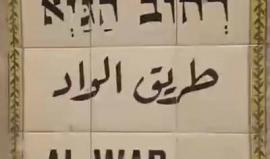 רחוב הגיא
طريق الواد
AL WAD